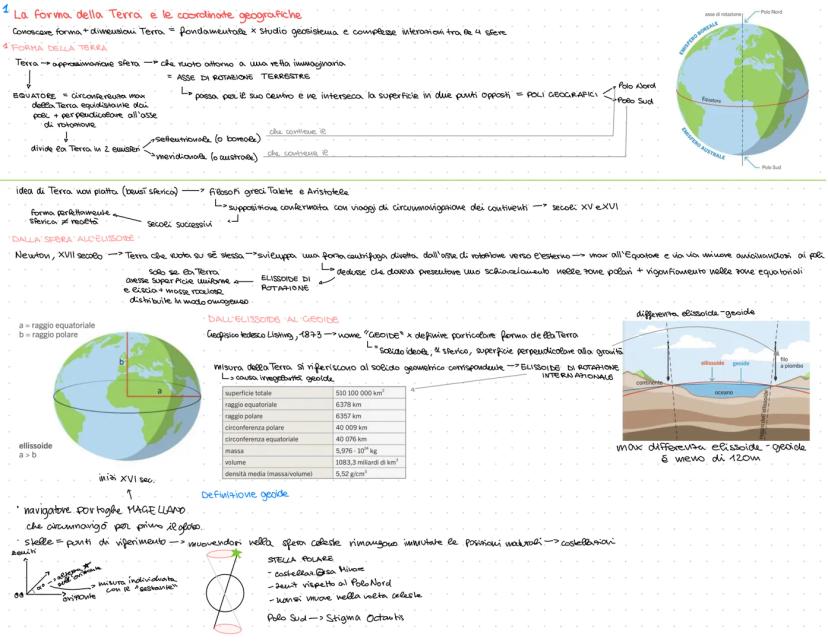 1
La forma della Terra e le coordinate geografiche
Conoscere forma + dimensioni Terra = fondamentale x studio geosistema e complesse interazioni tra le 4 sfere
1 FORMA DELLA TERRA
Terra → approssimazione sfera → che ruota attorno a una retta immaginaria
= ASSE DI ROTAZIONE TERRESTRE
passa per il suo centro e ne interseca la superficie in due punti opposti = POLI GEOGRAFICI
Polo Nord
Polo Sud
EQUATORE = circonferenza max
della Terra equidistante dai
poli + perpendicolare all'asse
di rotazione
divide la Terra in 2 emisferi
settentrionale (o boreale)
che contiene il
meridionale (o australe)
che contiene il
asse di rotazione
Polo Nord
EMISFERO BOREALE
Equatore
EMISFERO AUSTRALE
Polo Sud
idea di Terra non piatta (bensì sferica) → filosofi greci Talete e Aristotele
supposizione confermata con viaggi di circumnavigazione dei continenti → secoli XV e XVI
secoli successivi
forma perfettamente
sferica ≠ realtà
DALLA SFERA ALL'ELISSOIDE
Newton, XVII secolo → Terra che ruota su sé stessa → sviluppa una forza centrifuga diretta dall'asse di rotazione verso l'esterno → max all'Equatore e via via minore avvicinandosi ai poli
dedusse che doveva presentare uno schiacciamento nelle zone polari + rigonfiamento nelle zone equatoriali
ELISSOIDE DI
ROTAZIONE
solo se la Terra
avesse superficie uniforme
e liscia + masse rocciose
distribuite in modo omogeneo
a = raggio equatoriale
b = raggio polare
b
a
ellissoide
a > b
DALL'ELISSOIDE AL GEOIDE
Geofisico tedesco Listing, 1873 → nome "GEOIDE" x definire particolare forma della Terra
solido ideale, sferico, superficie perpendicolare alla gravità
misura della Terra si riferiscono al solido geometrico corrispondente → ELISSOIDE DI ROTAZIONE
INTERNAZIONALE
causa irregolarità geoide
superficie totale 510 100 000 km²
raggio equatoriale 6378 km
raggio polare 6357 km
circonferenza polare 40 009 km
circonferenza equatoriale 40 076 km
massa 5,976 · 10²⁴ kg
volume 1083,3 miliardi di km³
densità media (massa/volume) 5,52 g/cm³
differenza elissoide-geoide
ellissoide
geoide
filo
a piombo
continente
oceano
max differenza elissoide-geoide
è meno di 120m
Definizione geoide
inizi XVI sec.
· navigatore portoghe MAGELLANO
che circumnavigò per primo il globo.
· stelle = punti di riferimento → muovendosi nella sfera celeste rimangono immutate le posizioni → costellazioni
zenit
orizzonte
misura individuata
con il "sestante"
STELLA POLARE
- costellaz. Orsa Minore
- zenit rispetto al Polo Nord
- non si muove nella volta celeste
Polo Sud → Stigma Octantis